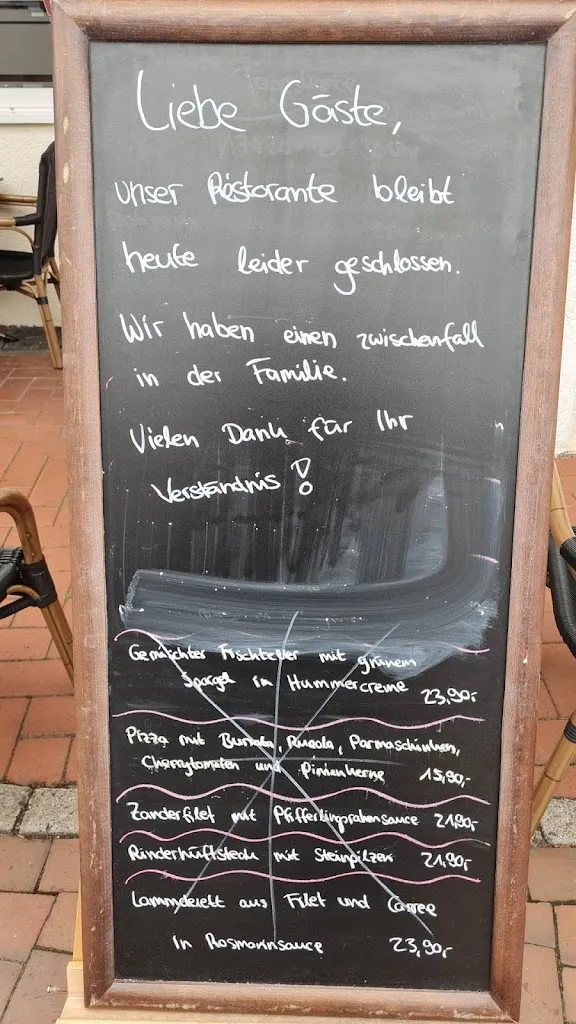 Liebe Gäste,
unser Ristorante bleibt
heute leider geschlossen.
Wir haben einen zwischenfall
in der Familie.
Vielen Dank für Ihr
Verständnis!
Gemischter Fischteller mit grünem
Spargel in Hummercreme 23,90,-
Pizza mit Burrata, Rucola, Parmaschinken,
Cherrytomaten und Pinienkerne 15,90,-
Zanderfilet mit Pfifferlingsrahmsauce 21,90,-
Rinderhüftsteak mit Steinpilzen 21,90,-
aus Filet und Carree
in Rosmarinsauce 23,90,-